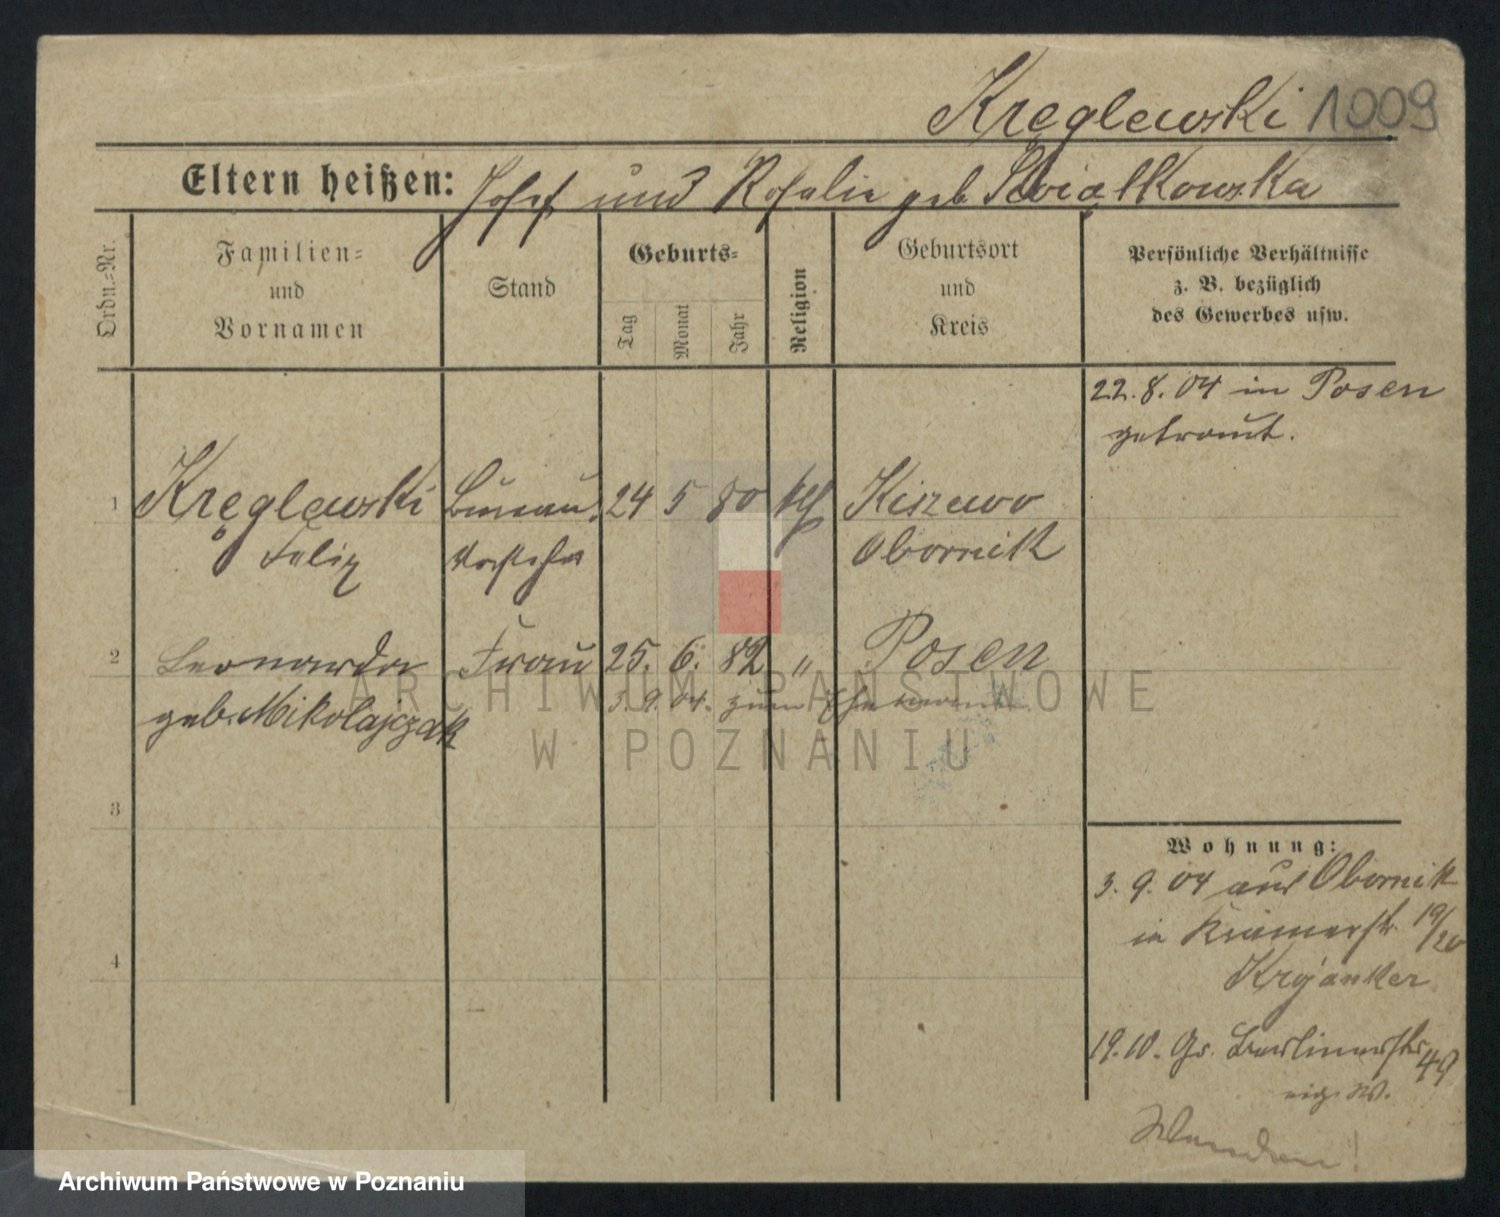 Kręglewski 1009
Eltern heißen: Josef und Rosalie geb Swiątkowska
Ordn.-Nr.
Familien-
und
Vornamen
Stand
Geburts-
Tag
Monat
Jahr
Religion
Geburtsort
und
Kreis
Persönliche Verhältnisse
z. B. bezüglich
des Gewerbes usw.
22. 8. 04 in Posen
getraut.
1 Kręglewski Bureau 24 5 80 kth Kiszewo
Felix Vorsteher Obornik
2 Leonarda Frau 25. 6. 82 " Posen
geb. Mikołajczak 3. 9. 04. zum Ehemann
3
4
Wohnung:
3. 9. 04 aus Obornik
in Krämerstr. 19/20
19. 10. Berlinerstr. 49
eig. W.
Wenden!
ARCHIWUM PAŃSTWOWE
W POZNANIU
Archiwum Państwowe w Poznaniu